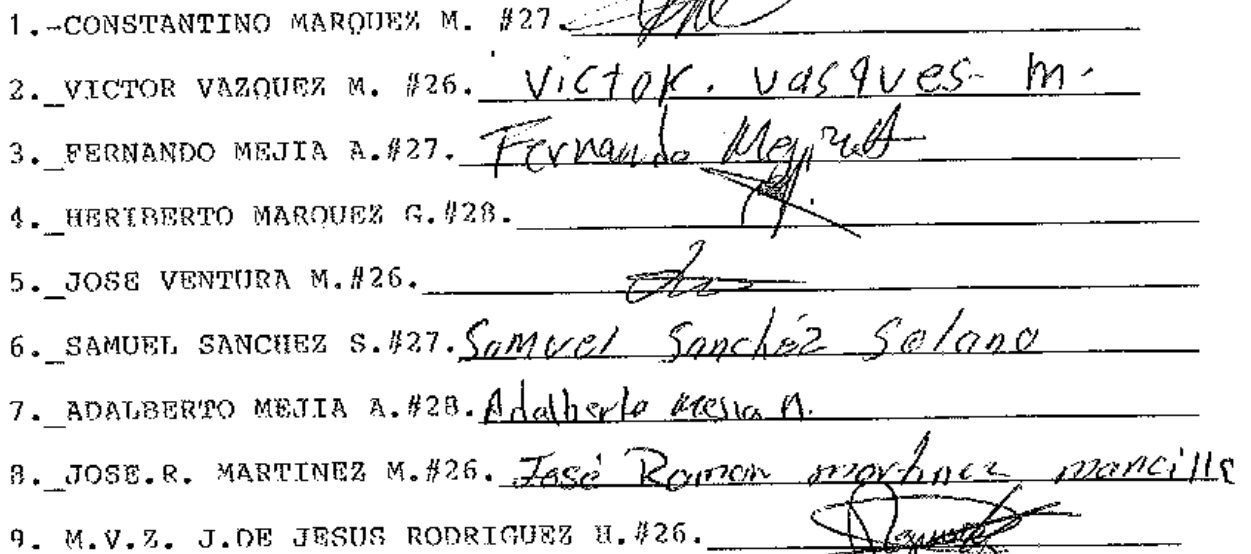 1.-CONSTANTINO MARQUEZ M. #27.
2._VICTOR VAZQUEZ M. #26. Victor. vasques- m.
3._FERNANDO MEJIA A.#27. Fernando Mejia A
4._HERIBERTO MARQUEZ G.#28.
5._JOSE VENTURA M.#26.
6._SAMUEL SANCHEZ S.#27. Samuel Sanchéz Solano
7._ADALBERTO MEJIA A.#28. Adalberto Mejia A.
8._JOSE.R. MARTINEZ M.#26. José Ramon martinez mancilla
9. M.V.Z. J.DE JESUS RODRIGUEZ H.#26.